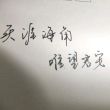 天涯海角
唯望君安